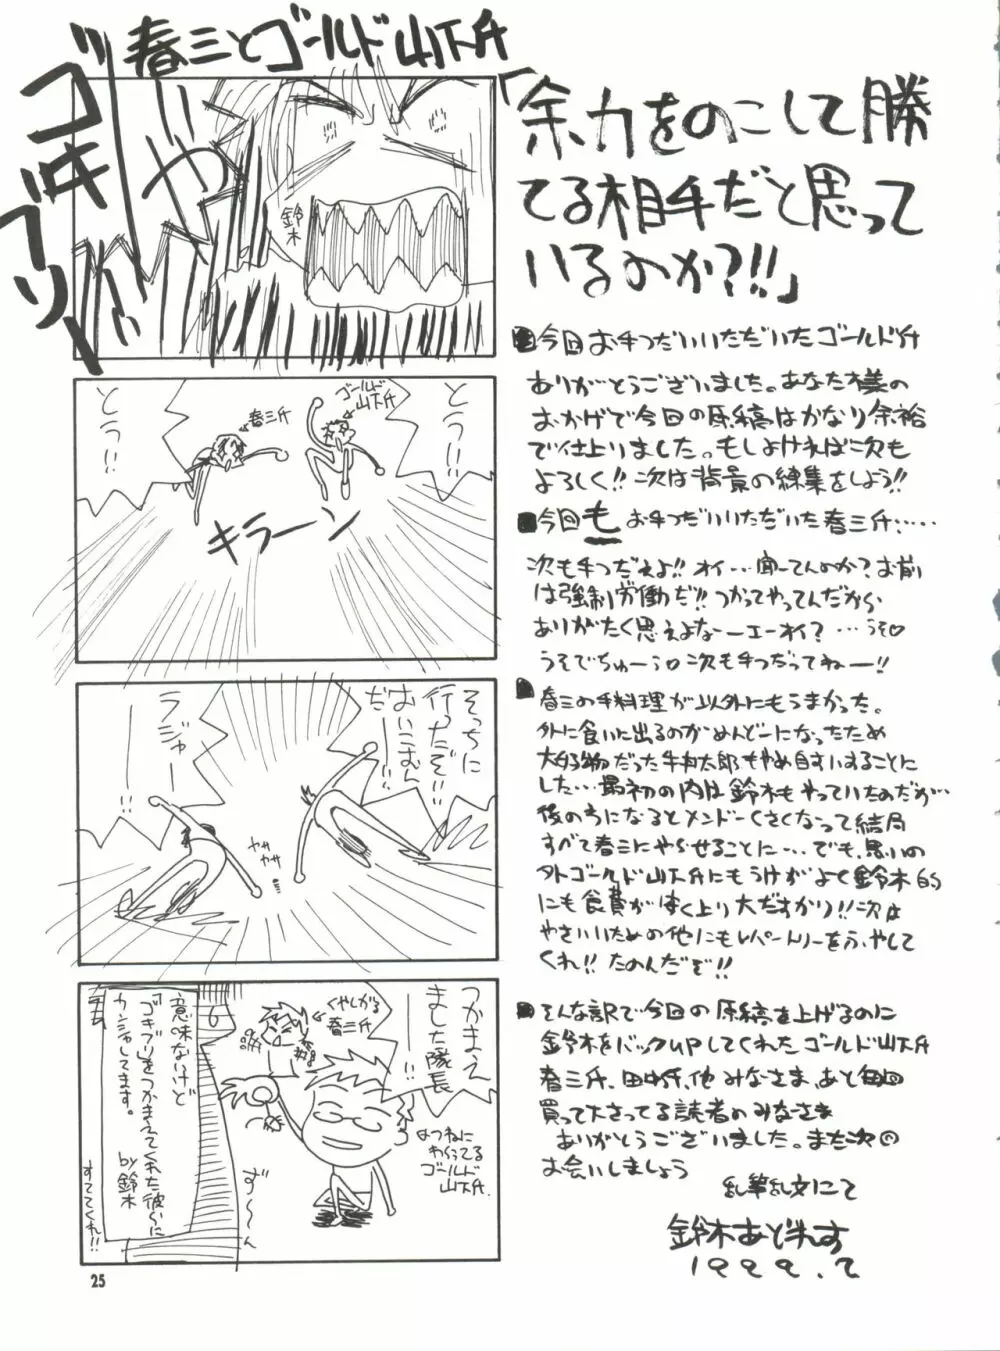 春三とゴールド山下斤
ゴキブリ
いやーー
鈴木
とうっ!!
ゴールド
山下斤
春三斤
とうっ!!
キラーン
そっちに
行ったぞ!!
おいこむん
だ!!
ラジャー
カサカサ
つかまえ
ました隊長
!!
くやしがる
春三斤
よつねに
わらってる
ゴールド
山下斤.
ず〜〜ん
意味ないけど
『ゴキブリ』をつかまえてくれた彼らに
カンシャしてます。
by鈴木
すててくれ!!
25
「余力をのこして勝
てる相手だと思って
いるのか?!!」
今回お手つだいいただいたゴールド斤
ありがとうございました。あなた様の
おかげで今回の原稿はかなり余裕
で仕上りました。もしよければ次も
よろしく!!次は背景の練集をしよう!!
今回もお手つだいいただいた春三斤……
次も手つだえよ!!オイ…聞ーてんのか?お前
は強制労働だ!!つかってやってんだから
ありがたく思えよなーエーオイ?…うそ♡
うそでちゅーう♡次も手つだってねー!!
春三の手料理が以外にもうまかった。
外に食いに出るのがめんどーになったため
大好物だった牛丼太郎もやめ自すいすることに
した…最初の内は鈴木もやっていたのだが…
後の方になるとメンドーくさくなって結局
すべて春三にやらせることに…でも、思いの
外ゴールド山下斤にもうけがよく鈴木的
にも食費がすく上り大だすかり!!次は
やさいいための他にもレパートリーをふやして
くれ!!たのんだぞ!!
そんな訳で今回の原稿を上げるのに
鈴木をバックupしてくれたゴールド山下斤
春三斤、田中斤、他みなさま、あと毎回
買って下さってる読者のみなさま
ありがとうございました。また次の
お会いしましょう
乱筆乱文にて
鈴木あどれす
1999.2